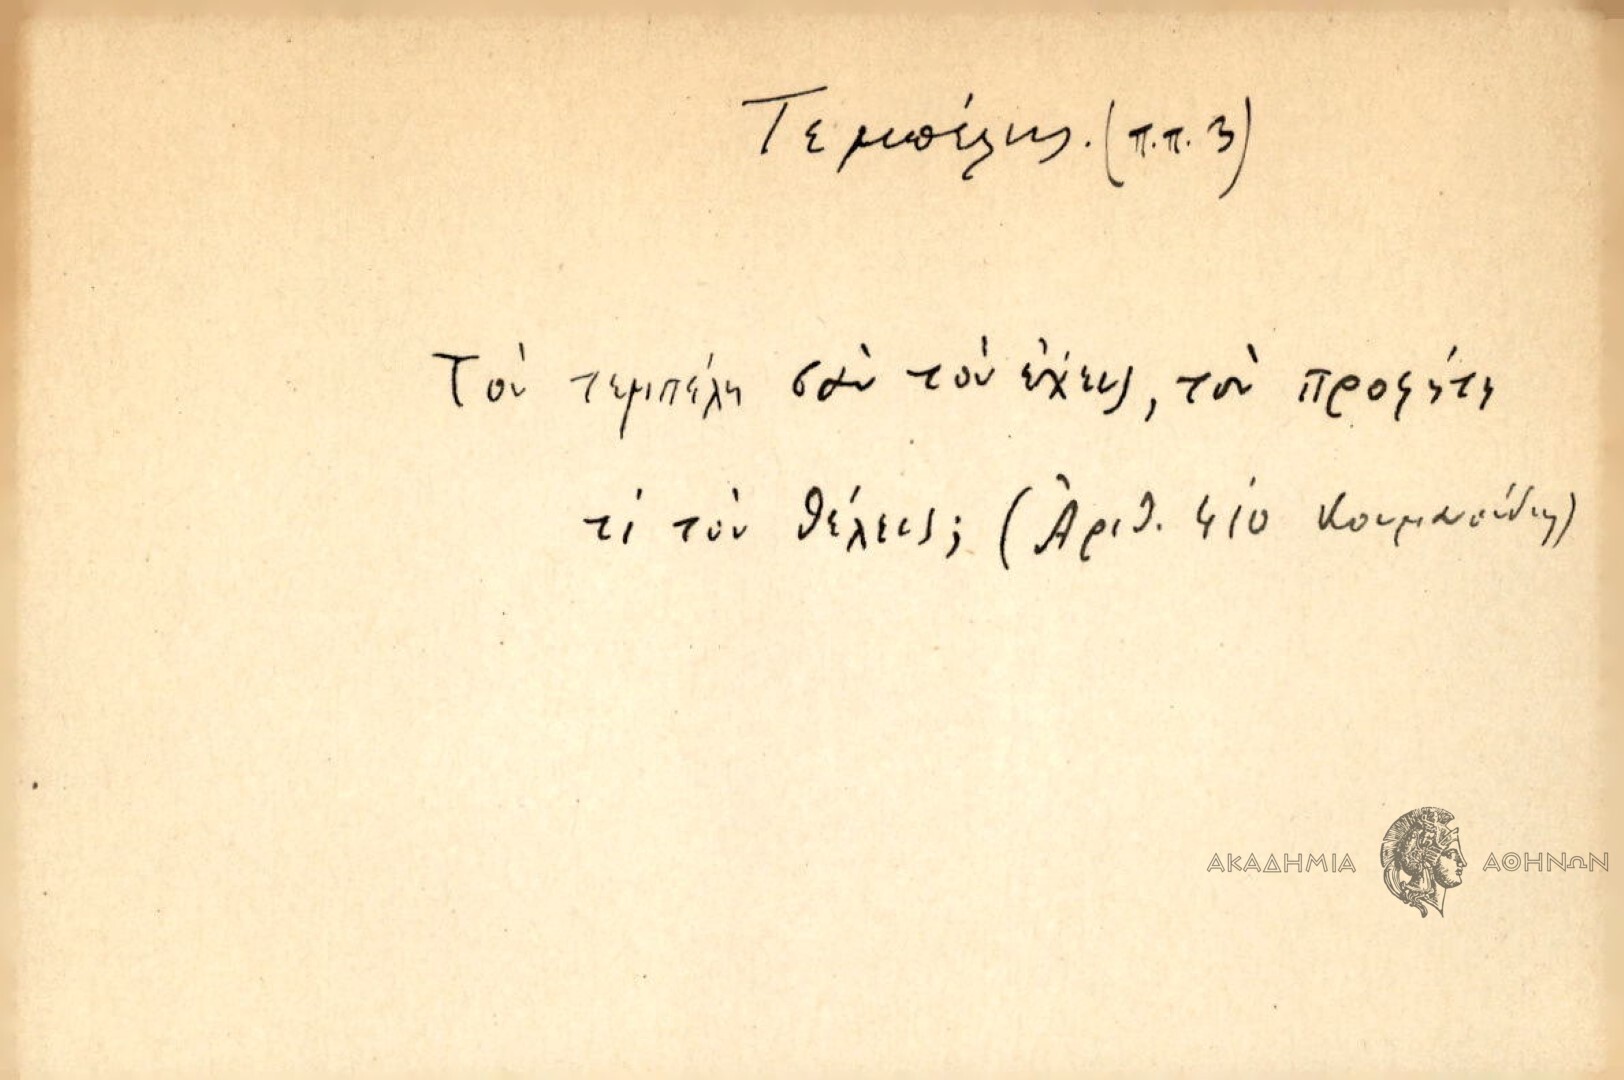 Τεμπέλης. (π.π. 3)
Τὸν τεμπέλη σὰν τὸν ἔχεις, τὸν προφήτη
τί τὸν θέλεις; (Ἀριθ. 410 Κουμανούδης)
ΑΚΑΔΗΜΙΑ ΑΘΗΝΩΝ